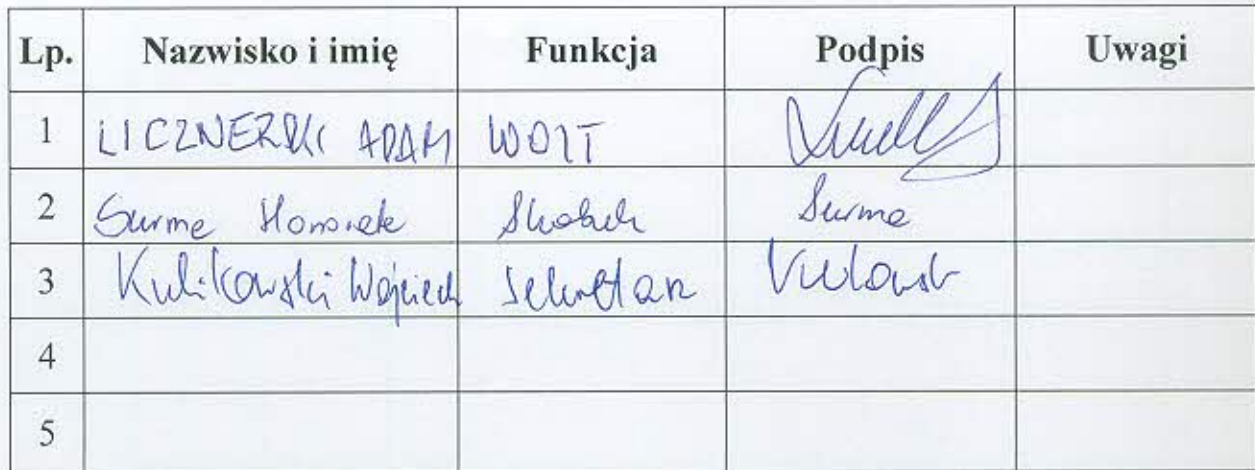 Lp. Nazwisko i imię Funkcja Podpis Uwagi
1 LICZNERSKI ADAM WÓJT
2 Surma Honorata Surma
3 Kulikowski Wojciech Sekretarz
4
5